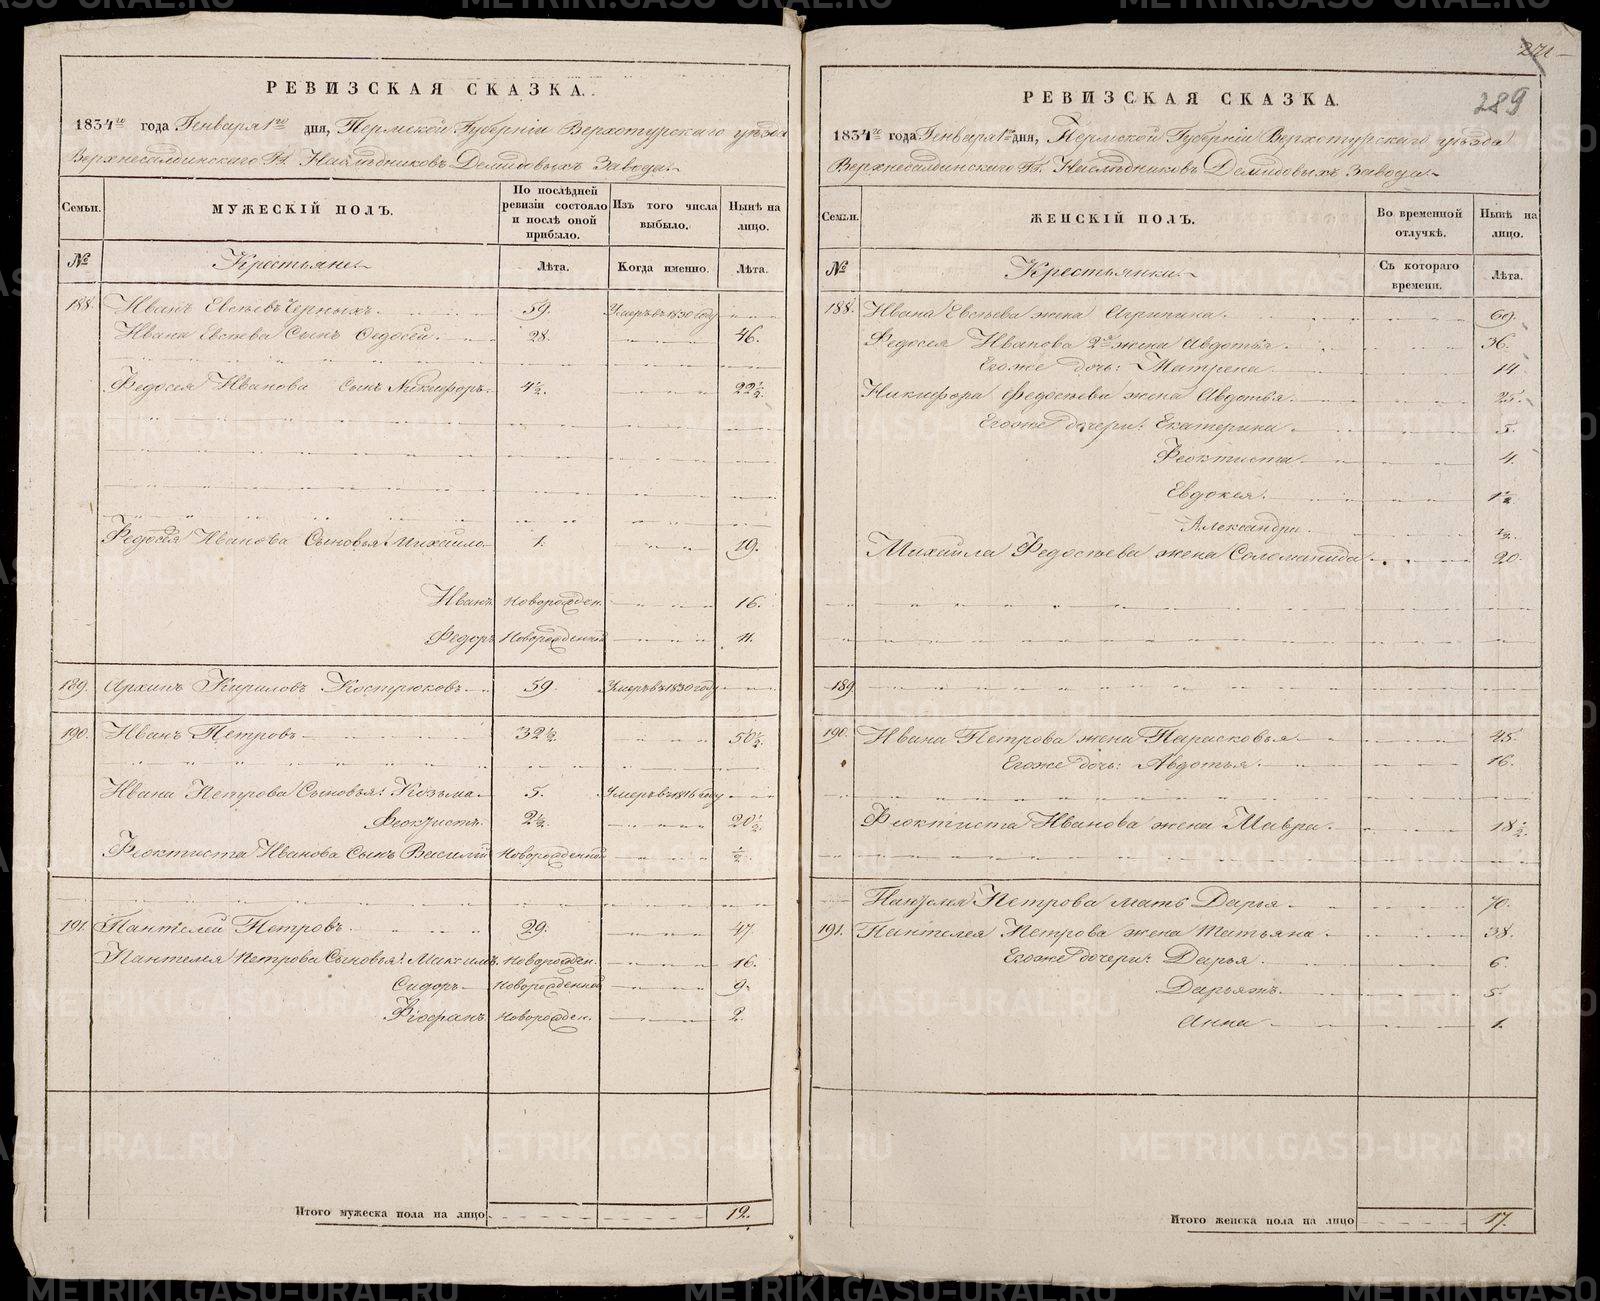 РЕВИЗСКАЯ СКАЗКА.
1834го года Генваря 1го дня, Пермской Губерніи Верхотурскаго уѣзда
Верхнесалдинскаго Гг. Наслѣдниковъ Демидовыхъ Завода.
Семьи.
МУЖЕСКІЙ ПОЛЪ.
По послѣдней ревизіи состояло и послѣ оной прибыло.
Изъ того числа выбыло.
Нынѣ на лицо.
№
Крестьяне.
Лѣта.
Когда именно.
Лѣта.
188. Иванъ Евсѣевъ Черныхъ. 59. Умеръ въ 1830 году
Ивана Евсѣева Сынъ Федосей. 28. 46.
Федосея Иванова Сынъ Никифоръ. 4½. 22½.
Федосея Иванова Сыновья: Михайло 1. 19.
Иванъ Новорожден. 16.
Федоръ Новорожденный 11.
189. Архипъ Кириловъ Кострюковъ 59. Умеръ въ 1830 году
190. Иванъ Петровъ 32½. 50½.
Ивана Петрова Сыновья: Козьма 5. Умеръ въ 1816 году
Феоктистъ. 2½. 20½.
Феоктиста Иванова Сынъ Василій Новорожденной ½.
191. Пантелей Петровъ. 29. 47.
Пантелея Петрова Сыновья: Максимъ. Новорожден. 16.
Сидоръ Новорожденной 9.
Новорожден. 2.
Итого мужеска пола на лицо 12.
271
289
РЕВИЗСКАЯ СКАЗКА.
1834го года Генваря 1го дня, Пермской Губерніи Верхотурскаго уѣзда
Верхнесалдинскаго Гг. Наслѣдниковъ Демидовыхъ Завода.
Семьи.
ЖЕНСКІЙ ПОЛЪ.
Во временной отлучкѣ.
Нынѣ на лицо.
№
Крестьянки.
Съ котораго времени.
Лѣта.
188. Ивана Евсѣева жена Агрипина. 69.
Федосея Иванова 2я жена Авдотья 36.
Егоже дочь: Матрена 14
Никифора Федосѣева жена Авдотья. 25.
Егоже дочери: Екатерина. 5.
Феоктиста 4.
Евдокея. 1½
Александра ½.
Михайла Федосѣева жена Соломанида 20.
189.
190. Ивана Петрова жена Парасковья 45.
Егоже дочь: Авдотья. 16.
Феоктиста Иванова жена Мавра. 18½.
Пантелея Петрова мать Дарья. 70.
191. Пантелея Петрова жена Татьяна 38.
Егоже дочери: Дарья. 6.
5.
Анна 1.
Итого женска пола на лицо 17.
METRIKI.GASO-URAL.RU